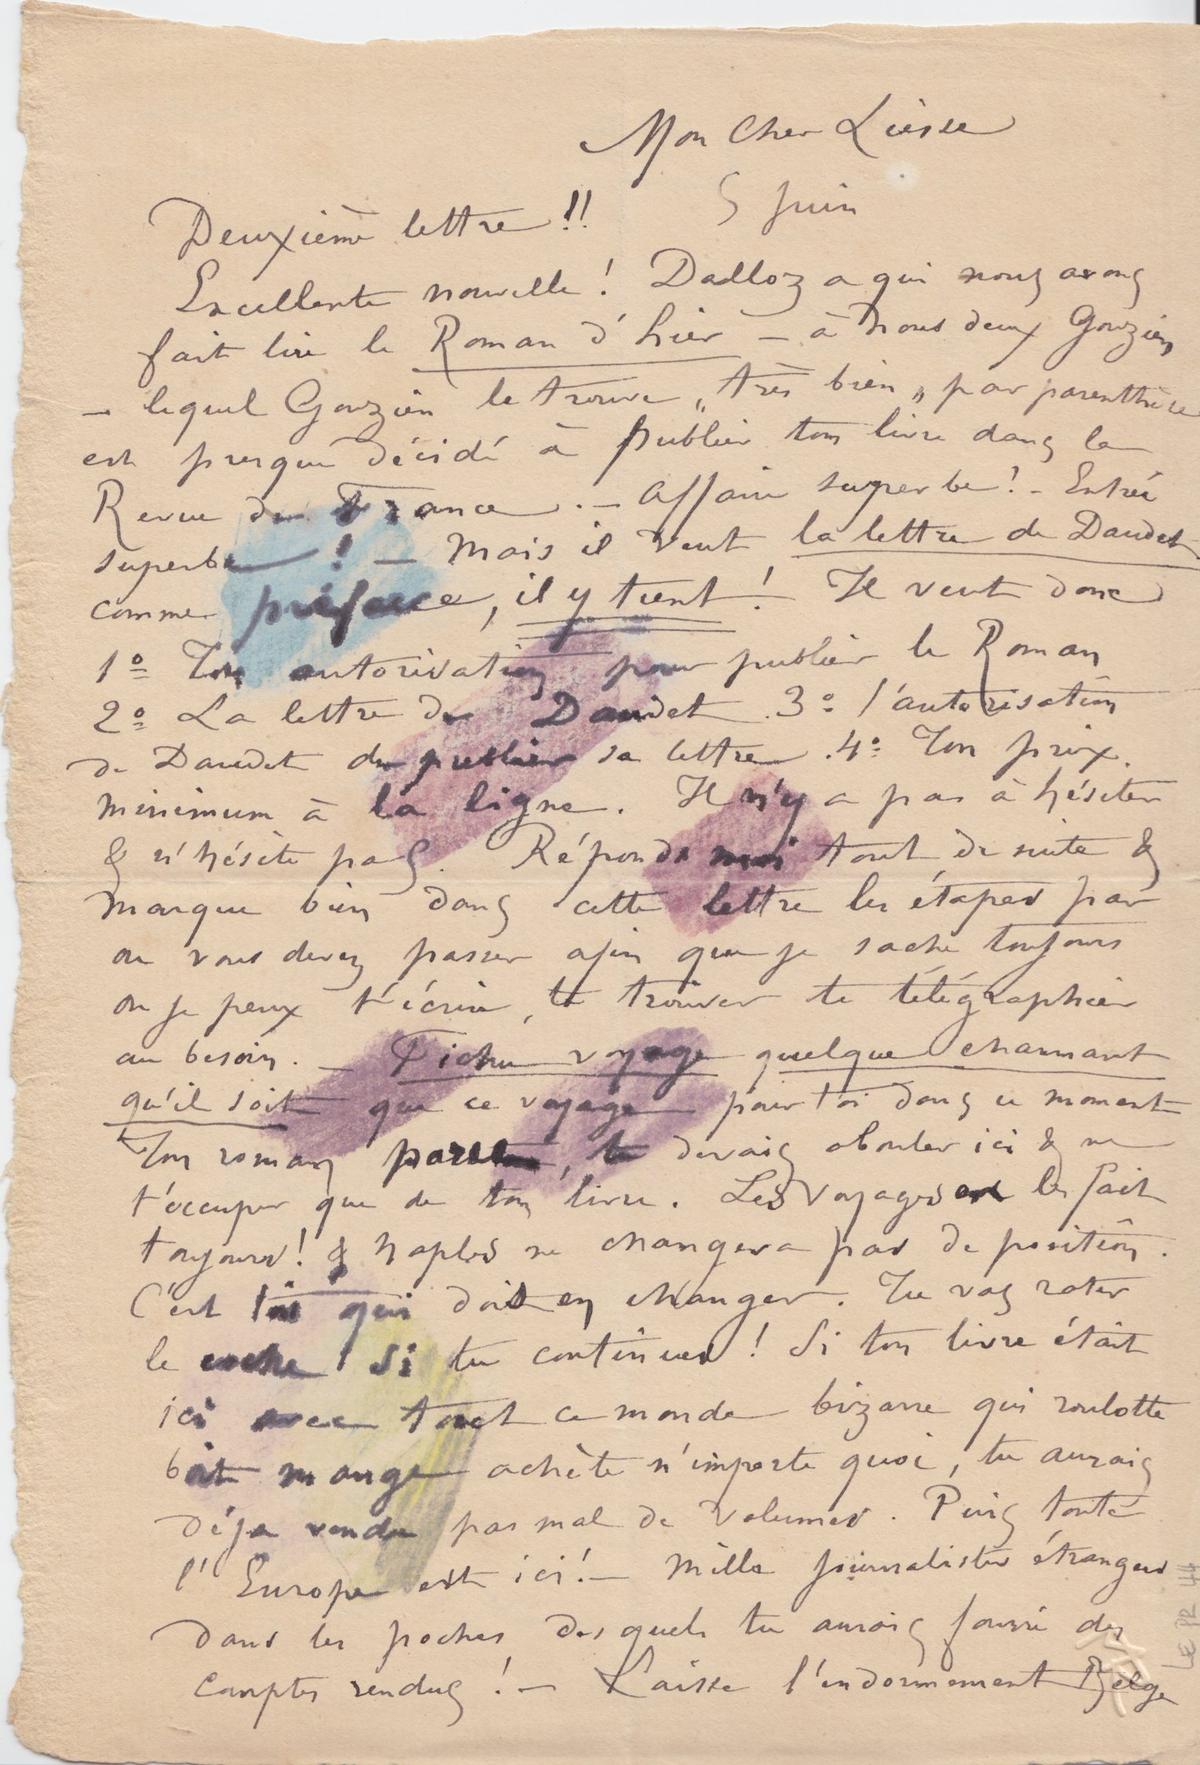 Mon Cher Liesse
5 Juin
Deuxième lettre !!
Excellente nouvelle ! Dalloz a qui nous avons
fait lire le Roman d'hier – à nous deux Gouzien
– lequel Gouzien le trouve „très bien„ par parenthèse
est presque décidé à publier ton livre dans la
Revue de France. – Affaire superbe ! – Entrée
superbe ! – Mais il veut la lettre de Daudet
comme préface, il y tient ! Il veut donc
1º Ton autorisation pour publier le Roman
2º La lettre de Daudet 3º l'autorisation
de Daudet de publier sa lettre. 4º Ton prix
minimum à la ligne. Il n'y a pas à hésiter
& n'hésite pas. Réponds moi tout de suite &
marque bien dans cette lettre les étapes par
ou vous devez passer afin que je sache toujours
ou je peux t'écrire, te trouver te télégraphier
au besoin. – Fichu voyage quelque charmant
qu'il soit que ce voyage pour toi dans ce moment
Ton roman paru, tu devais abouler ici & ne
t'occuper que de ton livre. Les voyages on les fait
toujours ! & Naples ne changera pas de position.
C'est toi qui doit en changer. Tu vas rater
le coche si tu continues ! Si ton livre était
ici avec tout ce monde bizarre qui roulotte
boit mange achète n'importe quoi, tu aurais
déja vendu pas mal de volumes. Puis toute
l'Europe est ici ! – Mille journalistes étrangers
dans les poches desquels tu aurais fourré des
comptes rendus ! – Laisse l'endormement Belge
LE PR 44